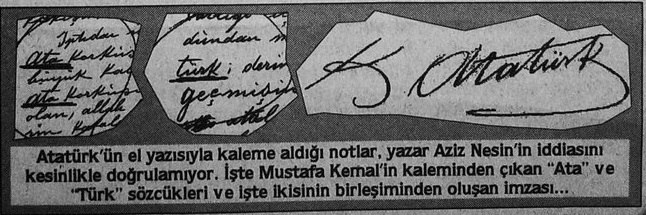 İptidar
Ata
büyük
Ata
olan,
dündan
türk; derin
geçmişin
K. Atatürk
Atatürk'ün el yazısıyla kaleme aldığı notlar, yazar Aziz Nesin'in iddiasını
kesinlikle doğrulamıyor. İşte Mustafa Kemal'in kaleminden çıkan "Ata" ve
"Türk" sözcükleri ve işte ikisinin birleşiminden oluşan imzası...